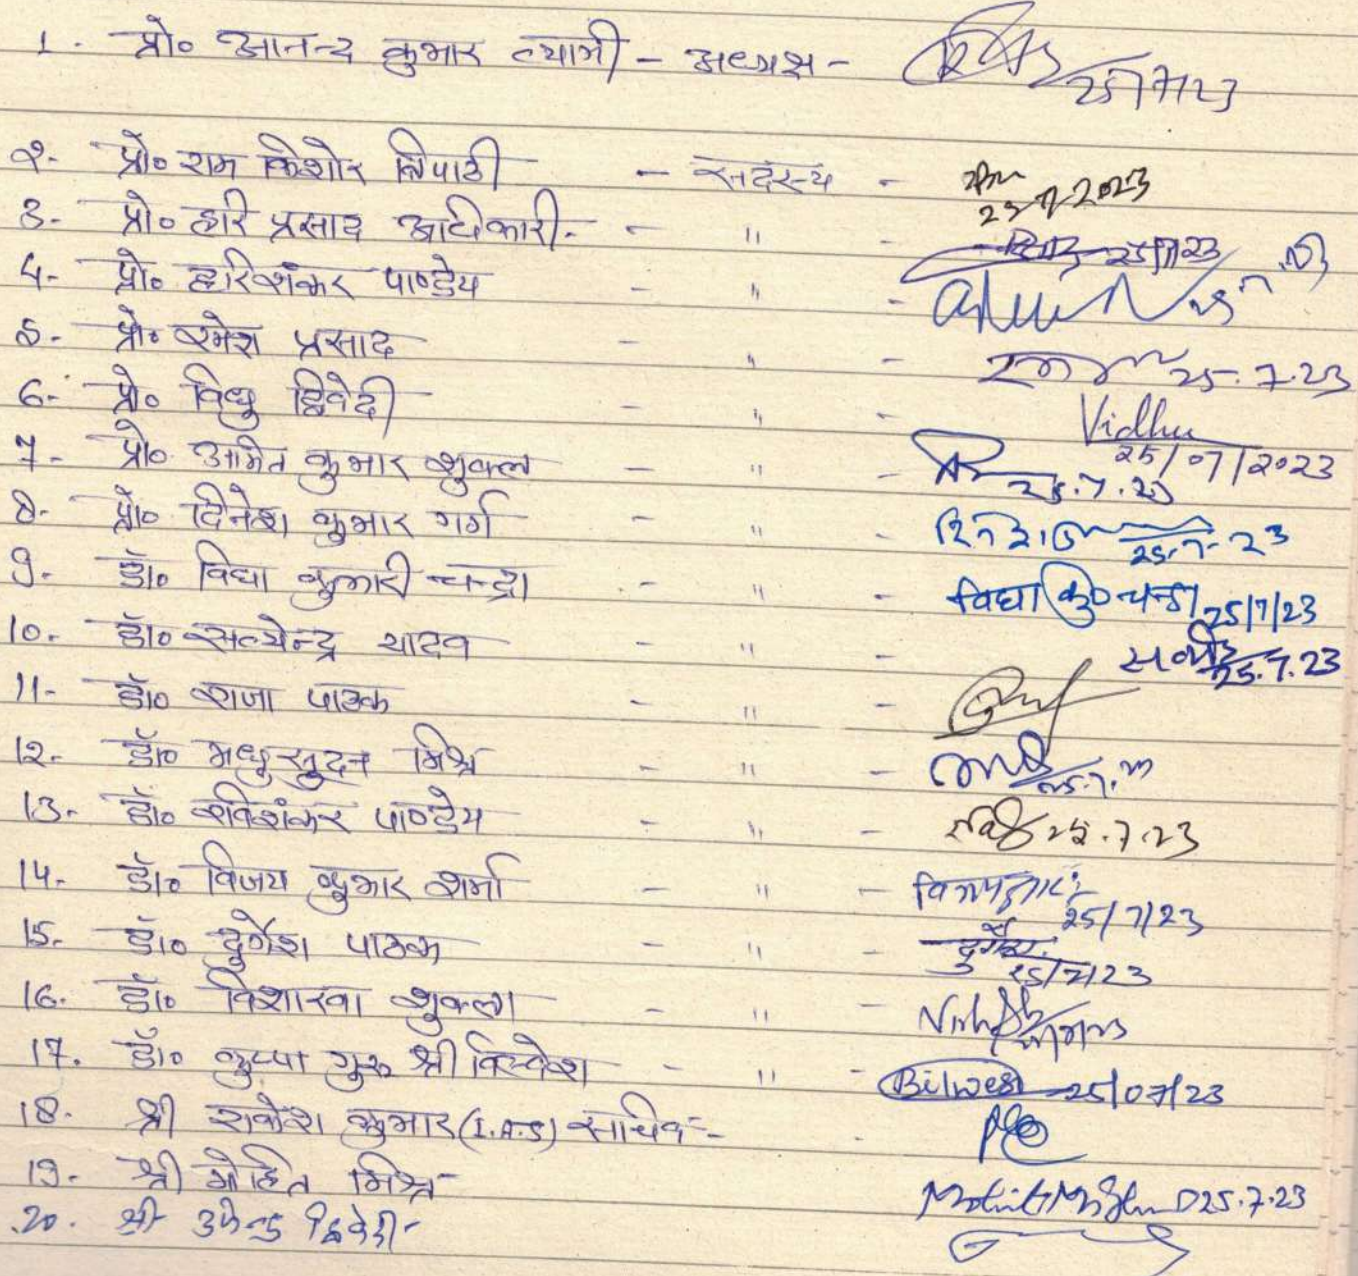 1. प्रो० आनन्द कुमार त्यागी - अध्यक्ष - 25/7/23
२- प्रो० राम किशोर त्रिपाठी - सदस्य - 25.7.2023
3- प्रो० हरि प्रसाद अधिकारी - " - 25/7/23
4- प्रो० हरिशंकर पाण्डेय - " -
5- प्रो० रमेश प्रसाद - " - 25.7.23
6- प्रो० विधु द्विवेदी - " - Vidhu 25/07/2023
7- प्रो० अमित कुमार शुक्ल - " - 25.7.23
8- प्रो० दिनेश कुमार गर्ग - " - 25.7.23
9- डॉ० विद्या कुमारी चन्द्रा - " - विद्या कु० चन्द्रा 25/7/23
10. डॉ० सत्येन्द्र यादव - " - 25.7.23
11- डॉ० राजा पाठक - " -
12- डॉ० मधुसूदन मिश्र - " - 25.7.23
13- डॉ० रविशंकर पाण्डेय - " - 25.7.23
14- डॉ० विजय कुमार शर्मा - " - 25/7/23
15- डॉ० दुर्गेश पाठक - " - दुर्गेश 25/7/23
16. डॉ० विशाखा शुक्ला - " -
17. डॉ० कुप्पा गुरु श्री विल्वेश - " - Bilwesh 25/07/23
18. श्री राकेश कुमार (I.A.S) सचिव -
19- श्री मोहित मिश्र - Mohit Mishra 25.7.23
20. श्री उपेन्द्र द्विवेदी -